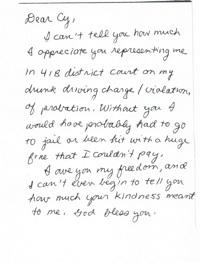 Dear Cy,
I can't tell you how much
I appreciate you representing me
in 418 district court on my
drunk driving charge / violation
of probation. Without you I
would have probably had to go
to jail or been hit with a huge
fine that I couldn't pay.
I owe you my freedom, and
I can't even begin to tell you
how much your kindness meant
to me. God bless you.